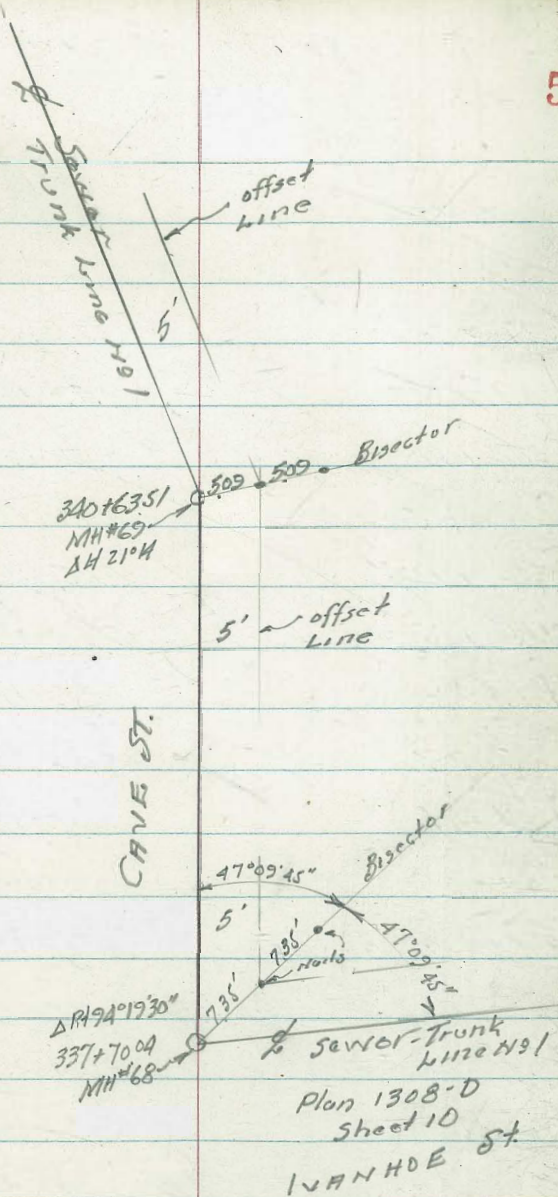 5
℄ Sewer
Trunk Line No 1
offset
Line
5'
509 509 Bisector
340+6351
MH#69
5'
offset
Line
CAVE ST.
Bisector
47°09'45"
5'
47°09'45"
7.35'
Nails
7.35'
Δ Rt 94°19'30"
337+7004
MH#68
℄ Sewer-Trunk
Line No 1
Plan 1308-D
Sheet 10
IVANHOE St.